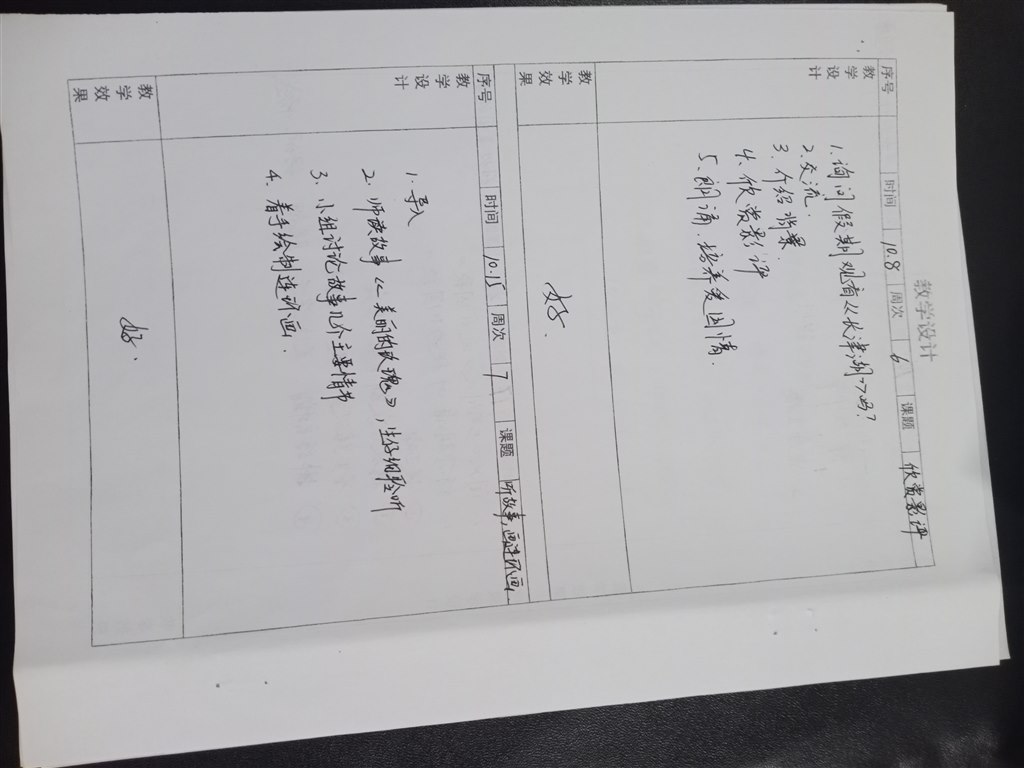 教学设计
序号 时间 10.8 周次 6 课题 欣赏影评
教学设计
1. 询问假期观看《长津湖》了吗?
2. 交流.
3. 介绍背景.
4. 欣赏影评
5. 朗诵. 培养爱国情.
教学效果
好.
序号 时间 10.15 周次 7 课题 听故事,画连环画
教学设计
1. 导入
2. 师读故事《美丽的玫瑰》,生仔细聆听
3. 小组讨论故事几个主要情节
4. 着手绘制连环画.
教学效果
好.